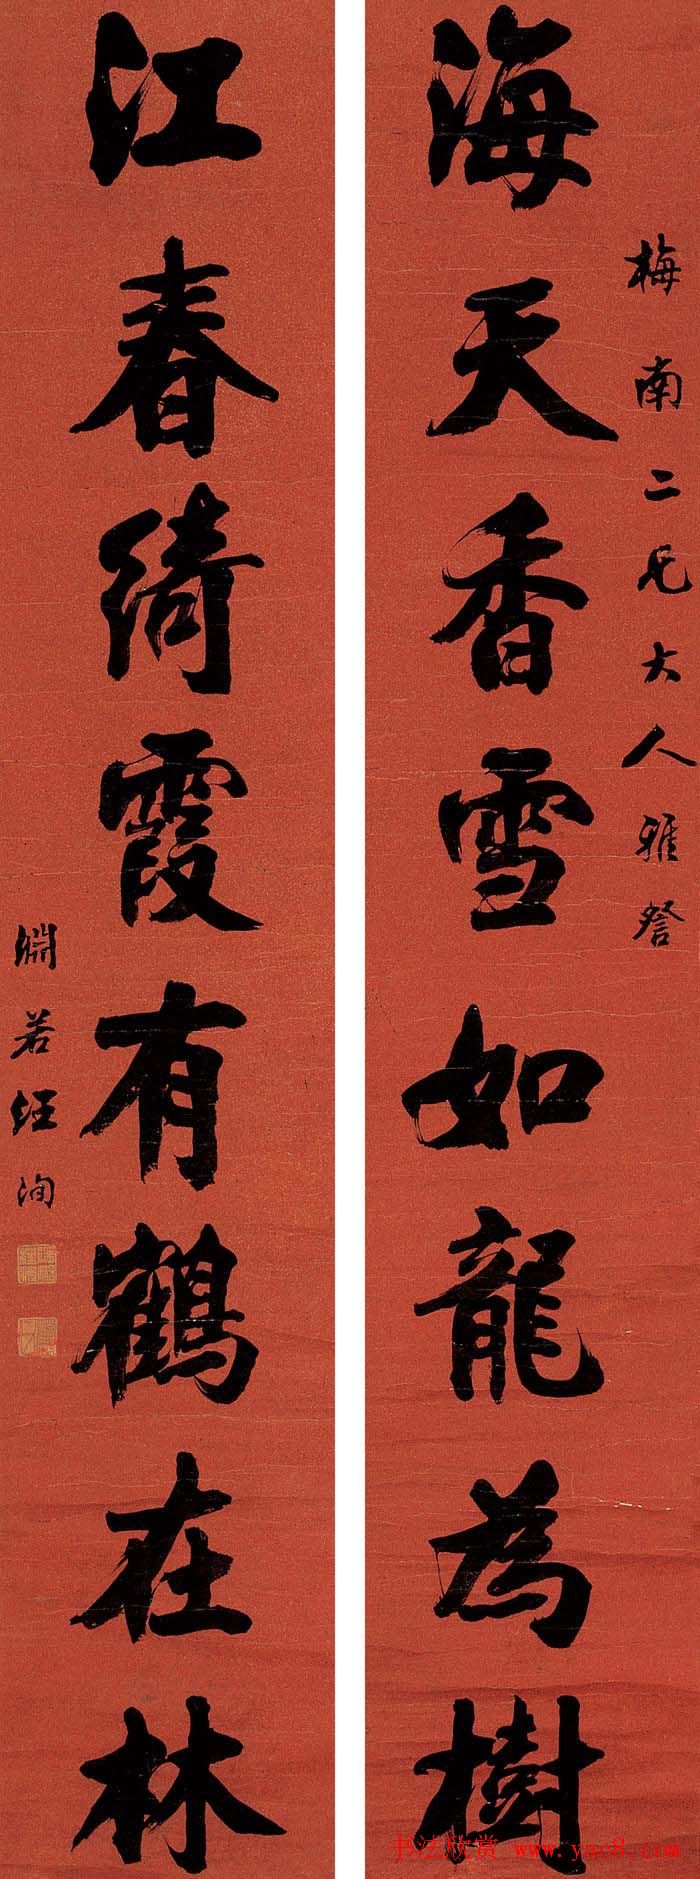 海天香雪如龍為樹
梅南二兄大人雅詧
江春綺霞有鶴在林
淵若汪洵
书法欣赏 www.yac8.com